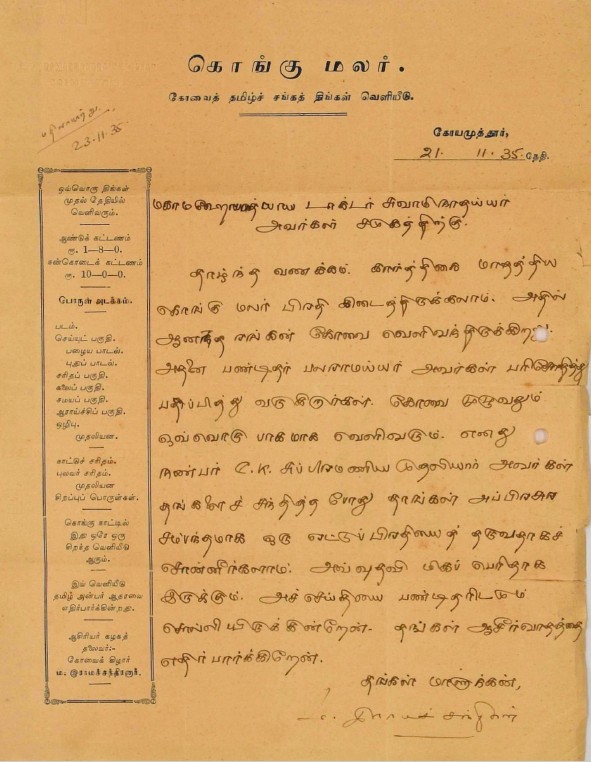 கொங்கு மலர்.
கோவைத் தமிழ்ச் சங்கத் திங்கள் வெளியீடு.
23.11.35
கோயமுத்தூர்,
21. 11. 35. தேதி.
ஒவ்வொரு திங்கள்
முதல் தேதியில்
வெளிவரும்.
ஆண்டுக் கட்டணம்
ரூ. 1—8—0.
நன்கொடைக் கட்டணம்
ரூ. 10—0—0.
பொருள் அடக்கம்.
படம்.
செய்யுட் பகுதி.
பழைய பாடல்.
புதுப் பாடல்.
சரிதப் பகுதி.
கலைப் பகுதி.
சமயப் பகுதி.
ஆராய்ச்சிப் பகுதி.
ஒழிபு.
முதலியன.
காட்டுச் சரிதம்.
புலவர் சரிதம்.
முதலியன
சிறப்புப் பொருள்கள்.
கொங்கு நாட்டில்
இது ஒரே ஒரு
சிறந்த வெளியீடு
ஆகும்.
இவ் வெளியீடு
தமிழ் அன்பர் ஆதரவை
எதிர்பார்க்கின்றது.
ஆசிரியர் கழகத்
தலைவர்:-
கோவைக் கிழார்
ம. ராமச்சந்திரனார்.
மகாமகோபாத்தியாய டாக்டர் சுவாமிநாதய்யர்
அவர்கள் சமுகத்திற்கு.
தாழ்ந்த வணக்கம். கார்த்திகை மாதத்திய
கொங்கு மலர் பிரதி கிடைத்திருக்கலாம். அதில்
கோவை வெளிவந்திருக்கிறது.
அதனை பண்டிதர் பலராமய்யர் அவர்கள் பரிசோதித்து
பதிப்பித்து வருகிறார்கள். கோவை முழுவதும்
ஒவ்வொரு பாகமாக வெளிவரும். எனது
நண்பர் C.K. சுப்பிரமணிய முதலியார் அவர்கள்
தங்களைச் சந்தித்த போது தாங்கள் அப்பிரசுர
சம்பந்தமாக ஒரு ஏட்டுப் பிரதியைத் தருவதாகச்
சொன்னீர்களாம். அவ்வுதவி மிகப் பெரிதாக
இருக்கும். அச் செய்தியை பண்டிதரிடமும்
சொல்லியிருக்கின்றேன். தங்கள் ஆசீர்வாதத்தை
எதிர் பார்க்கிறேன்.
தங்கள் மாணாக்கன்,